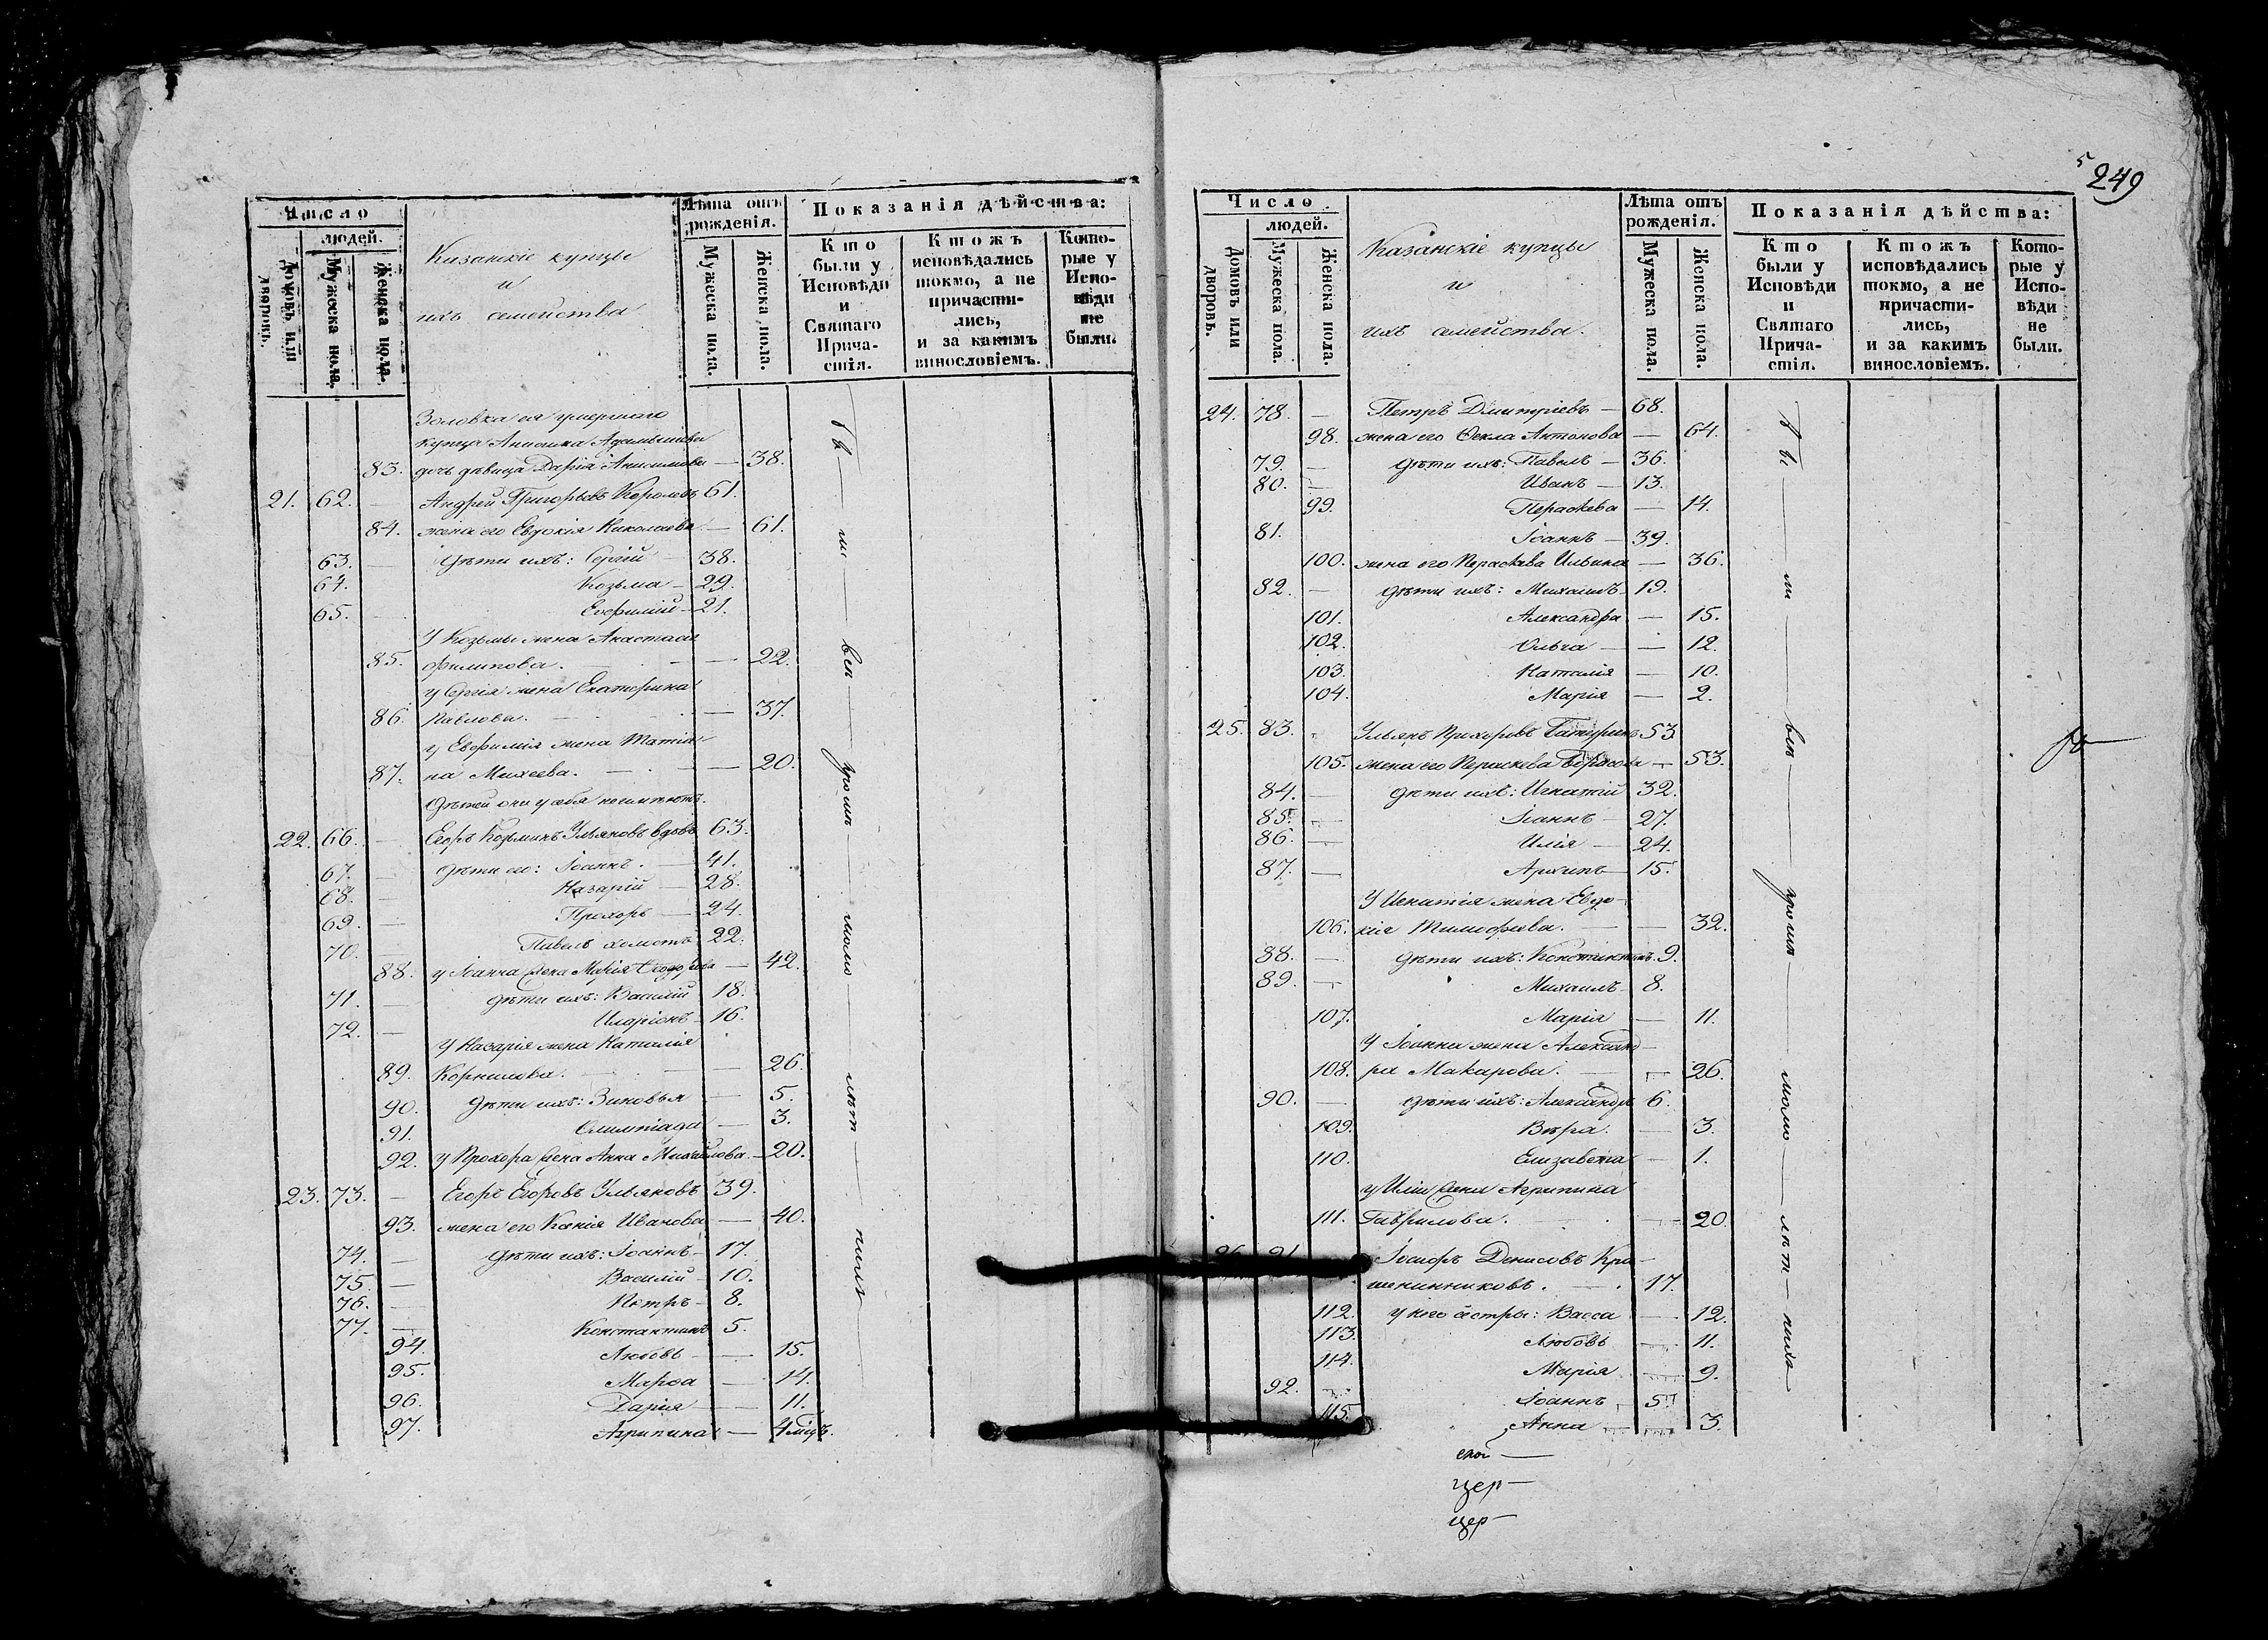 Число
людей.
Домовъ или дворовъ.
Мужеска пола.
Женска пола.
Казанскіе купцы
и
ихъ семейства
Лѣта отъ рожденія.
Мужеска пола.
Женска пола.
Показанія дѣйства:
Кто были у Исповѣди и Святаго Прича-стія.
Ктожъ исповѣдались токмо, а не причасти-лись, и за какимъ винословіемъ.
Кото-рые у Испо-вѣди не были.
Золовка ея умершаго
купца Анисима
83. дочь дѣвица Дарія Анисимова — 38.
21. 62. — Андрей Григорьевъ Королевъ 61.
84. жена его Евдокія Николаева — 61.
63. — дѣти ихъ: Сергій — 38.
64. Козьма — 29.
65. Евѳимій — 21.
У Козьмы жена Анастасія
85. Филипова. — — 22.
у Сергія жена Екатерина
86. Павлова. — — 37.
у Евфимія жена Татіа-
87. на Михеева. — — 20.
дѣтей они у себя не имѣютъ.
22. 66. — Егоръ Козьминъ Ульяновъ вдовъ 63.
67. — дѣти его: Іоаннъ. — 41.
68. — Назарій — 28.
69. — Прохоръ — 24.
70. Павелъ холостъ 22.
88. у Іоанна жена Марія — 42.
71. — дѣти ихъ: Василій 18.
72. — Иларіонъ 16.
У Назарія жена Наталия
89. Корнилова. — — 26.
90. дѣти ихъ: Зиновья — 5.
91. Олимпіада — 3.
92. у Прохора жена Анна Михайлова — 20.
23. 73. — Егоръ Егоровъ Ульяновъ 39.
93. жена его Ксенія Иванова — 40.
74. — дѣти ихъ: Іоаннъ — 17.
75. — Василій — 10.
76. — Петръ — 8.
77. — Константинъ 5.
94. Любовь — 15.
95. Марѳа — 14.
96. Дарія — 11.
97. Агрипина — 4 мѣц.
249
Число
людей.
Домовъ или дворовъ.
Мужеска пола.
Женска пола.
Казанскіе купцы
и
ихъ семейства.
Лѣта отъ рожденія.
Мужеска пола.
Женска пола.
Показанія дѣйства:
Кто были у Исповѣди и Святаго Прича-стія.
Ктожъ исповѣдались токмо, а не причасти-лись, и за какимъ винословіемъ.
Кото-рые у Испо-вѣди не были.
24. 78. — Петръ Дмитріевъ — 68.
98. жена его Ѳекла Антонова — 64.
79. — дѣти ихъ: Павелъ — 36.
80. — Иванъ — 13.
99. Параскева — 14.
81. Іоаннъ — 39.
100. жена его Параскева Ильина — 36.
82. — дѣти ихъ: Михаилъ 19.
101. Александра — 15.
102. Ольга — 12.
103. Наталія — 10.
104. Марія — 2.
25. 83. Ульянъ Прохоровъ 53
105. жена его Параскева — 53.
84. — дѣти ихъ: Игнатій 32.
85. — Іоаннъ — 27.
86. — Илія — 24.
87. — Архипъ — 15.
У Игнатія жена Евдо-
106. кія Тимоѳеева. — — 32.
88. — дѣти ихъ: Константинъ 9.
89. — Михаилъ 8.
107. Марія — 11.
У Іоанна жена Александ-
108. ра Макарова. — 26.
90. — дѣти ихъ: Александръ 6.
109. Вѣра. — 3.
110. Елизавета — 1.
у Иліи жена Агрипина
111. Гаврилова. — 20.
26. 91. Іосифъ Денисовъ Кра-
шенинниковъ. — 17.
112. у него сестры: Васса — 12.
113. Любовь — 11.
114. Марія — 9.
92. — Іоаннъ 5.
115. Анна — 3.
ской —
цер —
цер —